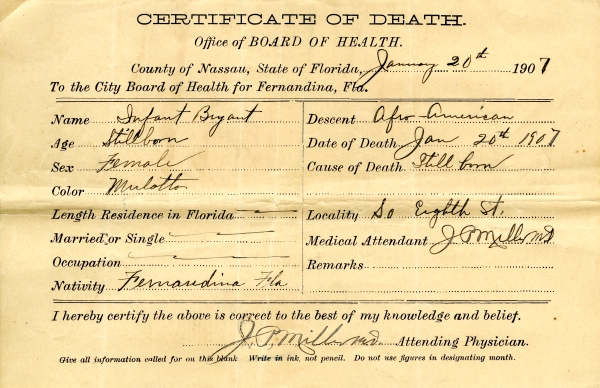 CERTIFICATE OF DEATH.
Office of BOARD OF HEALTH.
County of Nassau, State of Florida, January 20th 1907
To the City Board of Health for Fernandina, Fla.
Name Infant Bryant
Age Stillborn
Sex Female
Color Mulatto
Length Residence in Florida
Married or Single
Occupation
Nativity Fernandina Fla
Descent Afro American
Date of Death Jan 20th 1907
Cause of Death Still born
Locality So Eighth St.
Medical Attendant J. P. Mills MD
Remarks
I hereby certify the above is correct to the best of my knowledge and belief.
J. P. Mills MD. Attending Physician.
Give all information called for on this blank. Write in ink, not pencil. Do not use figures in designating month.